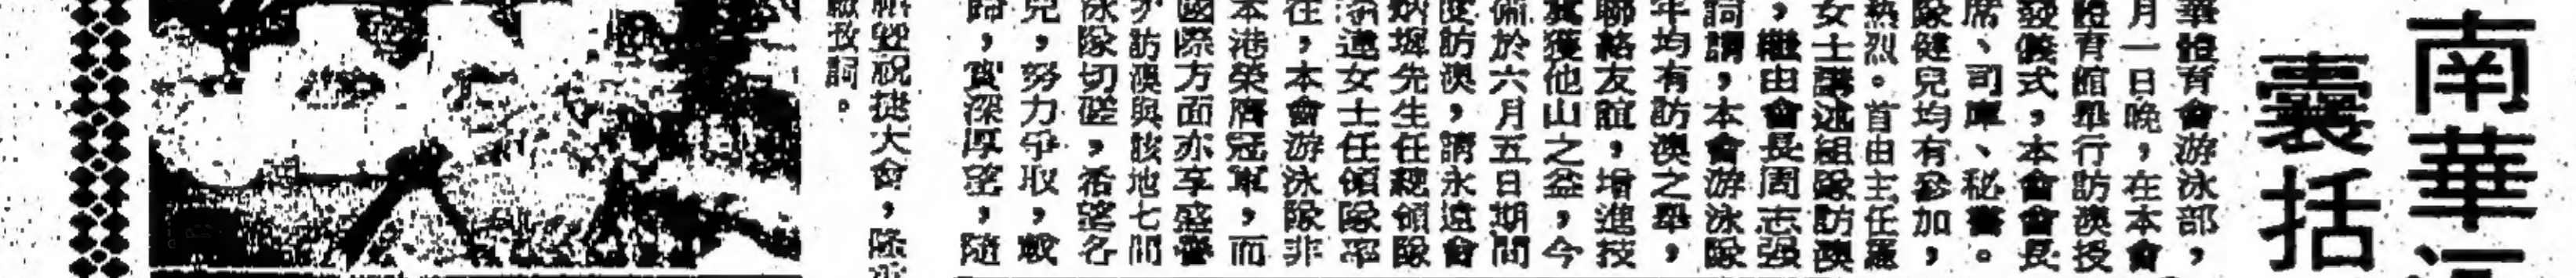 南華
囊括
華體育會游泳部，
月一日晚，在本會
體育館舉行訪澳授
發儀式，本會會長
席、司庫、秘書。
隊健兒均有參加，
熱烈。首由主任羅
女士講述組隊訪澳
，繼由會長周志强
詞謂，本會游泳隊
年均有訪澳之舉，
聯絡友誼，增進技
冀獲他山之益，今
備於六月五日期間
度訪澳，請永遠會
炳墀先生任總領隊
蓮女士任領隊率
往，本會游泳隊非
本港榮膺冠軍，而
國際方面亦享盛譽
亦訪澳與該地七間
泳隊切磋，希望各
兒，努力爭取，戰
歸，實深厚望，隨
祝捷大會，隆重
致詞。